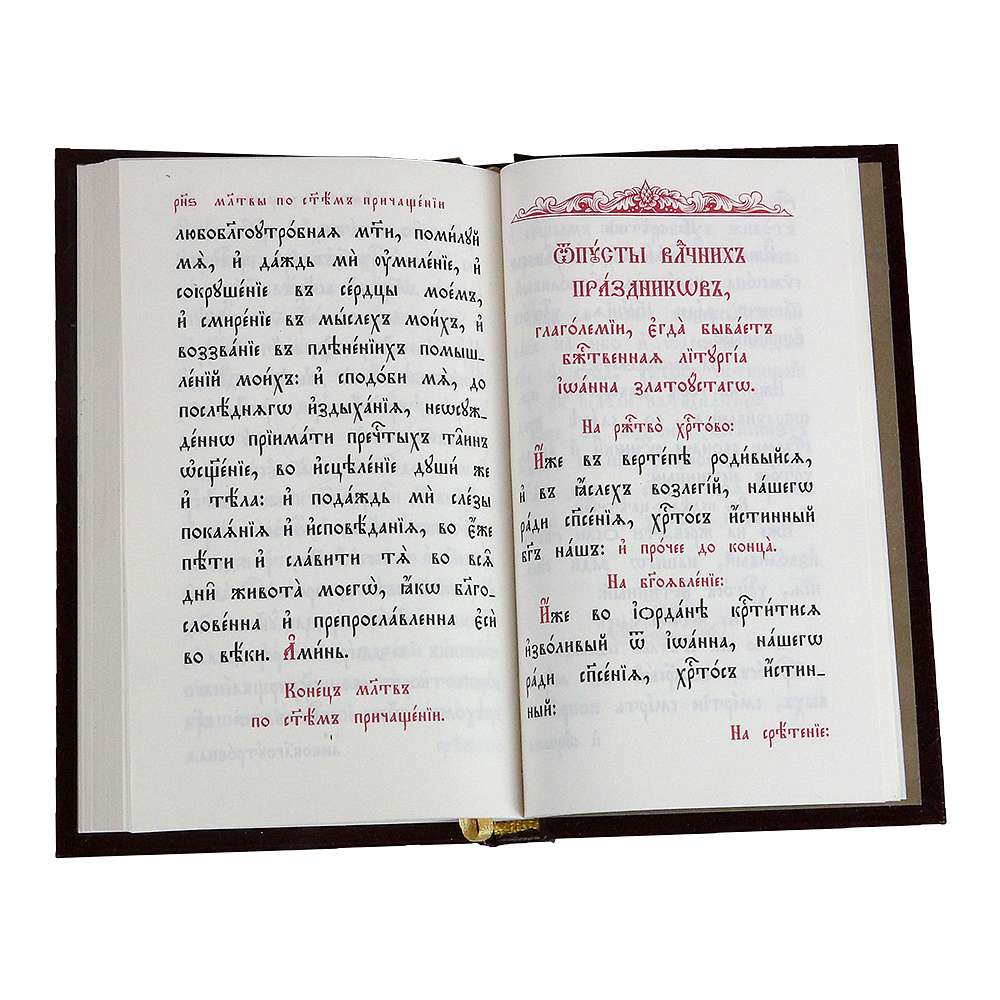 рн҃ѕ мл҃твы по ст҃ѣмъ причащенїи
любобл҃гоутро́бная мт҃и, поми́луй
мѧ̀, и҆ да́ждь мѝ ᲂу҆миле́нїе, и҆
сокруше́нїе въ се́рдцы мое́мъ,
и҆ смире́нїе въ мы́слехъ мои́хъ, и҆
воззва́нїе въ плѣне́нїихъ помыш_
ле́нїй мои́хъ: и҆ сподо́би мѧ̀, до
послѣ́днѧгѡ и҆здыха́нїѧ, неѡсуж_
де́ннѡ прїима́ти пречⷭ҇тыхъ та̑инъ
ѡ҆сщ҃е́нїе, во и҆сцѣле́нїе души́ же
и҆ тѣ́ла: и҆ пода́ждь мѝ сле́зы
покаѧ́нїѧ и҆ и҆сповѣ́данїѧ, во є҆́же
пѣ́ти и҆ сла́вити тѧ̀ во всѧ̑
дни̑ живота̀ моегѡ̀, ꙗ҆́кѡ бл҃го_
слове́нна и҆ препросла́вленна є҆сѝ
во вѣ́ки. А҆ми́нь.
Коне́цъ мл҃твъ
по ст҃ѣ́мъ причаще́нїи.
Ѿпꙋ́сты влⷣчнихъ
пра́здникѡвъ,
глаго́лемїи, є҆гда̀ быва́етъ
бжⷭ҇твенная лїтургі́а
і҆ѡа́нна златоу́стагѡ.
На ржⷭ҇тво̀ хрⷭ҇то́во:
И҆́же въ верте́пѣ роди́выйсѧ,
и҆ въ ꙗ҆́слехъ возлегі́й, на́шегѡ
ра́ди сп҃се́нїѧ, хрⷭ҇то́съ и҆́стинный
бг҃ъ на́шъ: и҆ про́чее до конца̀.
На бг҃оѧвле́нїе:
И҆́же во і҆ѻрда́нѣ крⷭ҇ти́тисѧ
и҆зво́ливый ѿ і҆ѡа́нна, на́шегѡ
ра́ди сп҃се́нїѧ, хрⷭ҇то́съ и҆́стин_
ный:
На срѣ́тенїе: